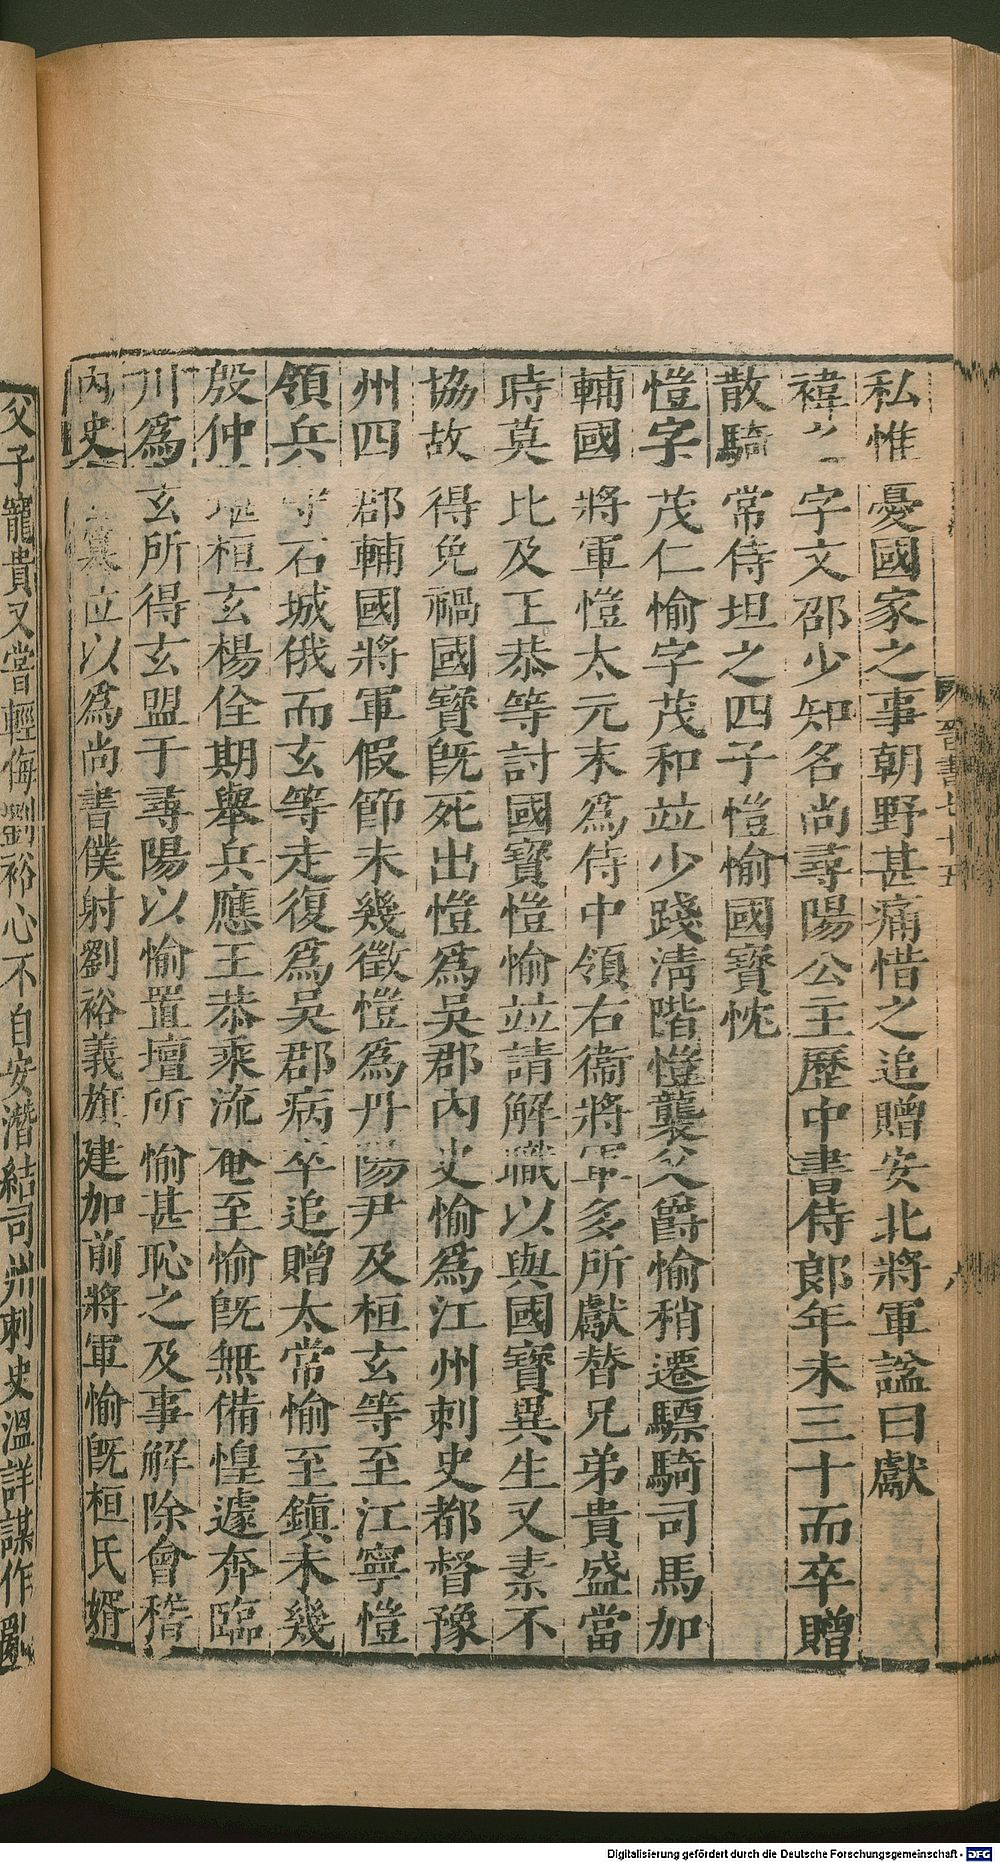 私惟憂國家之事朝野甚痛惜之追贈安北將軍諡曰獻
褘之字文邵少知名尚尋陽公主歷中書侍郎年未三十而卒贈
散騎常侍坦之四子愷愉國寶忱
愷字茂仁愉字茂和竝少踐淸階愷襲父爵愉稍遷驃騎司馬加
輔國將軍愷太元末爲侍中領右衞將軍多所獻替兄弟貴盛當
時莫比及王恭等討國寶愷愉竝請解職以與國寶異生又素不
協故得免禍國寶旣死出愷爲吳郡內史愉爲江州刺史都督豫
州四郡輔國將軍假節未幾徵愷爲丹陽尹及桓玄等至江寧愷
領兵守石城俄而玄等走復爲吳郡病卒追贈太常愉至鎭未幾
殷仲堪桓玄楊佺期舉兵應王恭乘流奄至愉旣無備惶遽奔臨
川爲玄所得玄盟于尋陽以愉置壇所愉甚恥之及事解除會稽
內史玄簒位以爲尚書僕射劉裕義旗建加前將軍愉旣桓氏婿
父子寵貴又嘗輕侮劉裕心不自安潛結司州刺史溫詳謀作亂
晉書七十五
八
Digitalisierung gefördert durch die Deutsche Forschungsgemeinschaft - DFG